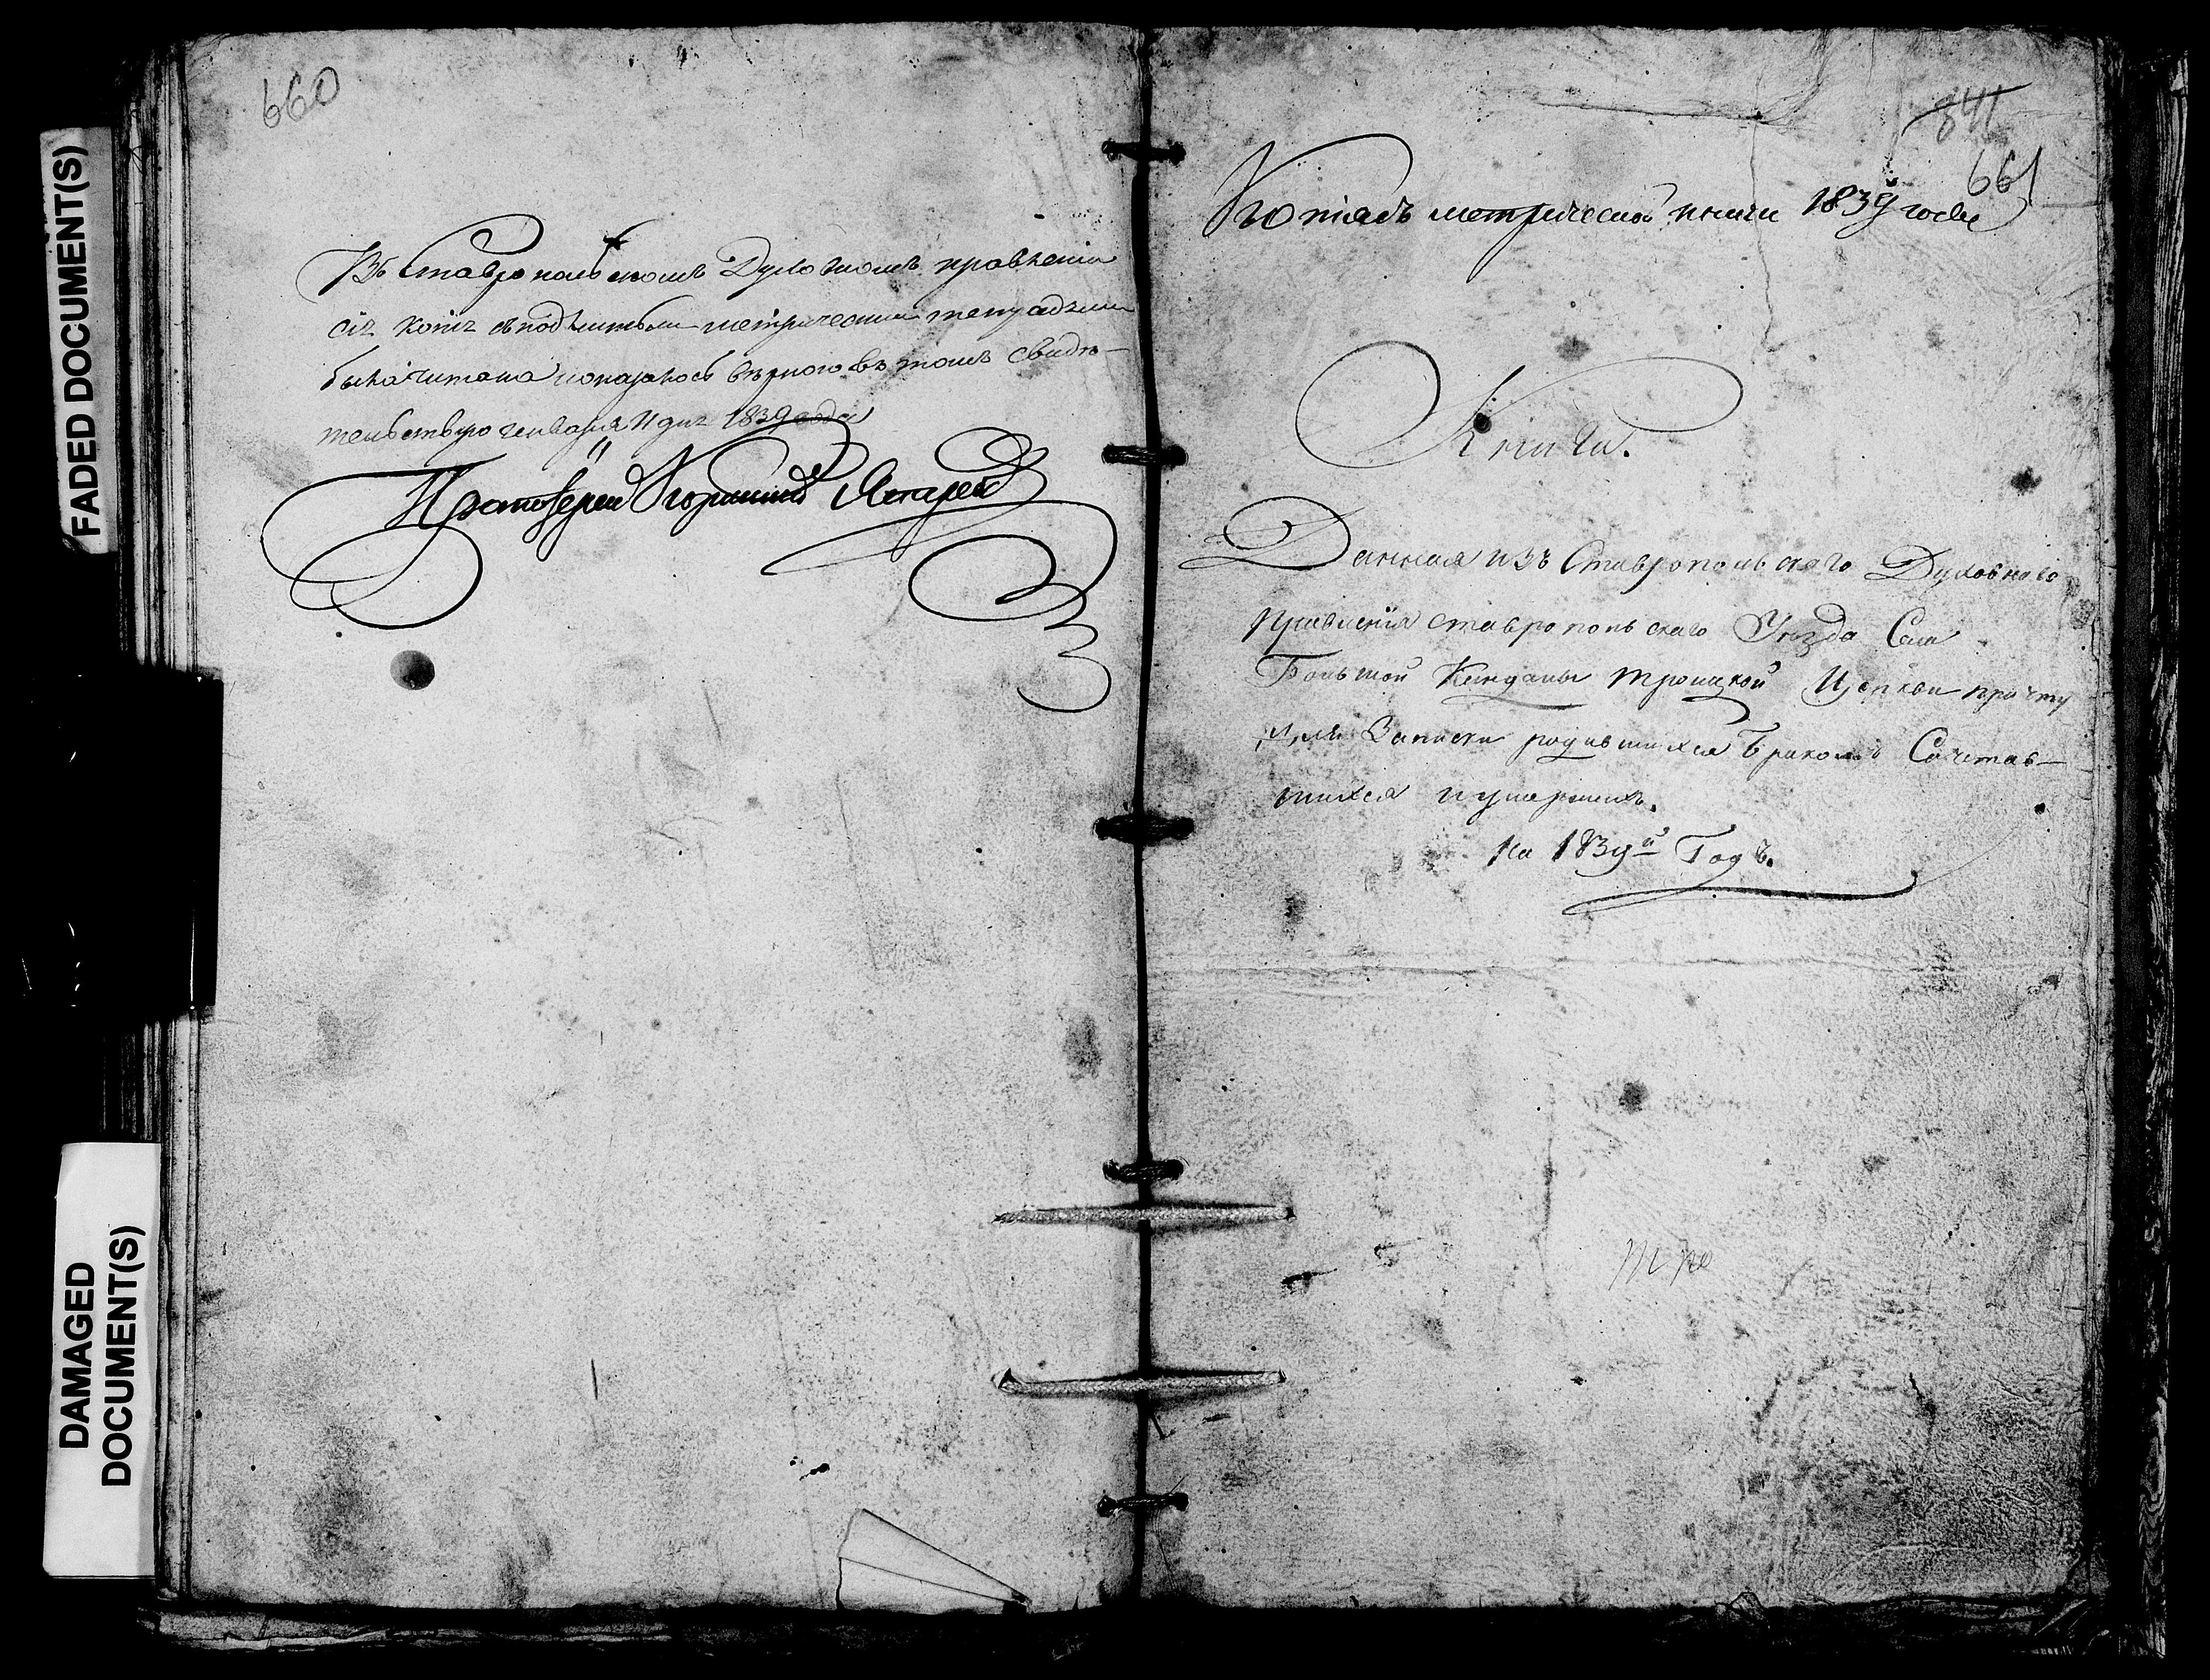 FADED DOCUMENT(S)
DAMAGED
DOCUMENT(S)
660
Въ Ставропольскомъ Духовномъ правленіи
сія копія съ подлинными метрическими тетрадями
была читана и оказалось вѣрною въ томъ свидѣ-
тельствую генваря 11 дня 1839 года
Протоіерей
841
661
Копія съ метрической книги 183 года
Книга.
Данная изъ Ставропольскаго Духовнаго
Правленія Ставропольскаго Уѣзда Села
Большой Кандалы Троицкой Церкви причту
для Записки родившихся Бракомъ Сочетав-
шихся и умершихъ.
на 183 й Годъ.